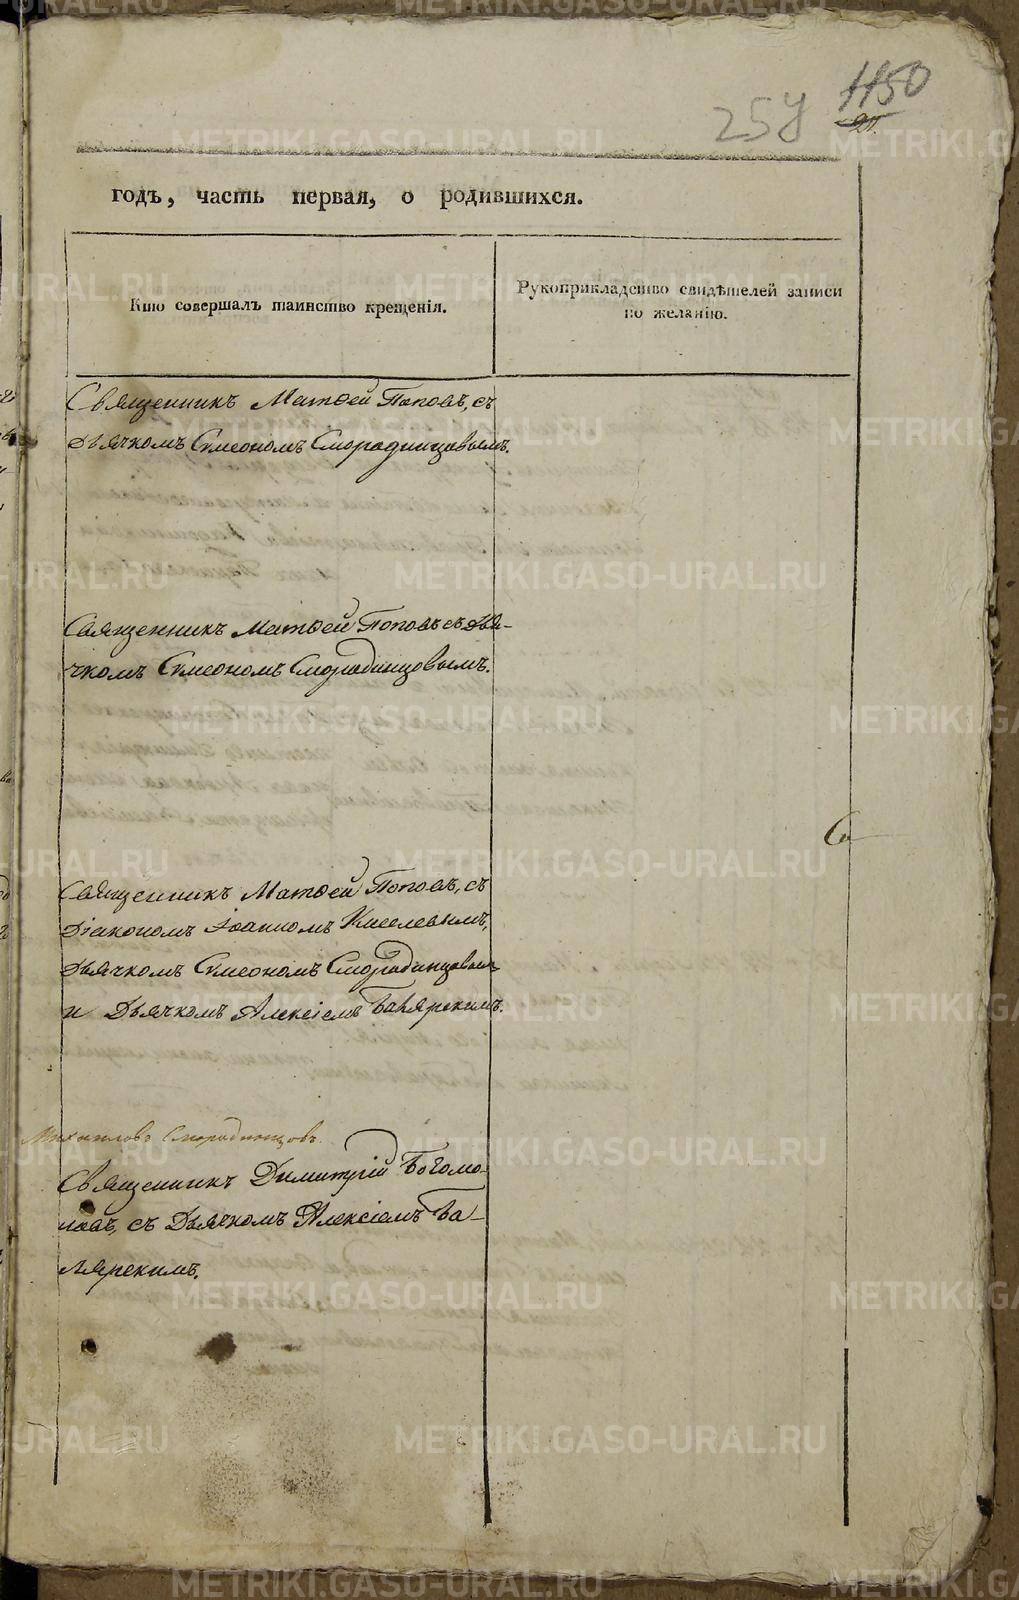 257 1150
годъ, часть первая, о родившихся.
Кто совершалъ таинство крещенія.
Рукоприкладство свидѣтелей записи
по желанію.
Священникъ Матѳей Поповъ, съ
дьячкомъ Симеономъ Смородинцовымъ.
Священникъ Матѳей Поповъ съ дья-
чкомъ Симеономъ Смородинцовымъ.
Священникъ Матѳей Поповъ, съ
Діакономъ Іоанномъ Киселевымъ,
дьячкомъ Симеономъ Смородинцовым
и Дьячкомъ Алексіемъ
Михаилов Смородинцовъ.
Священникъ Димитрій Богомо-
ловъ, съ Дьячкомъ Алексіемъ Ба-
лярскимъ.
METRIKI.GASO-URAL.RU